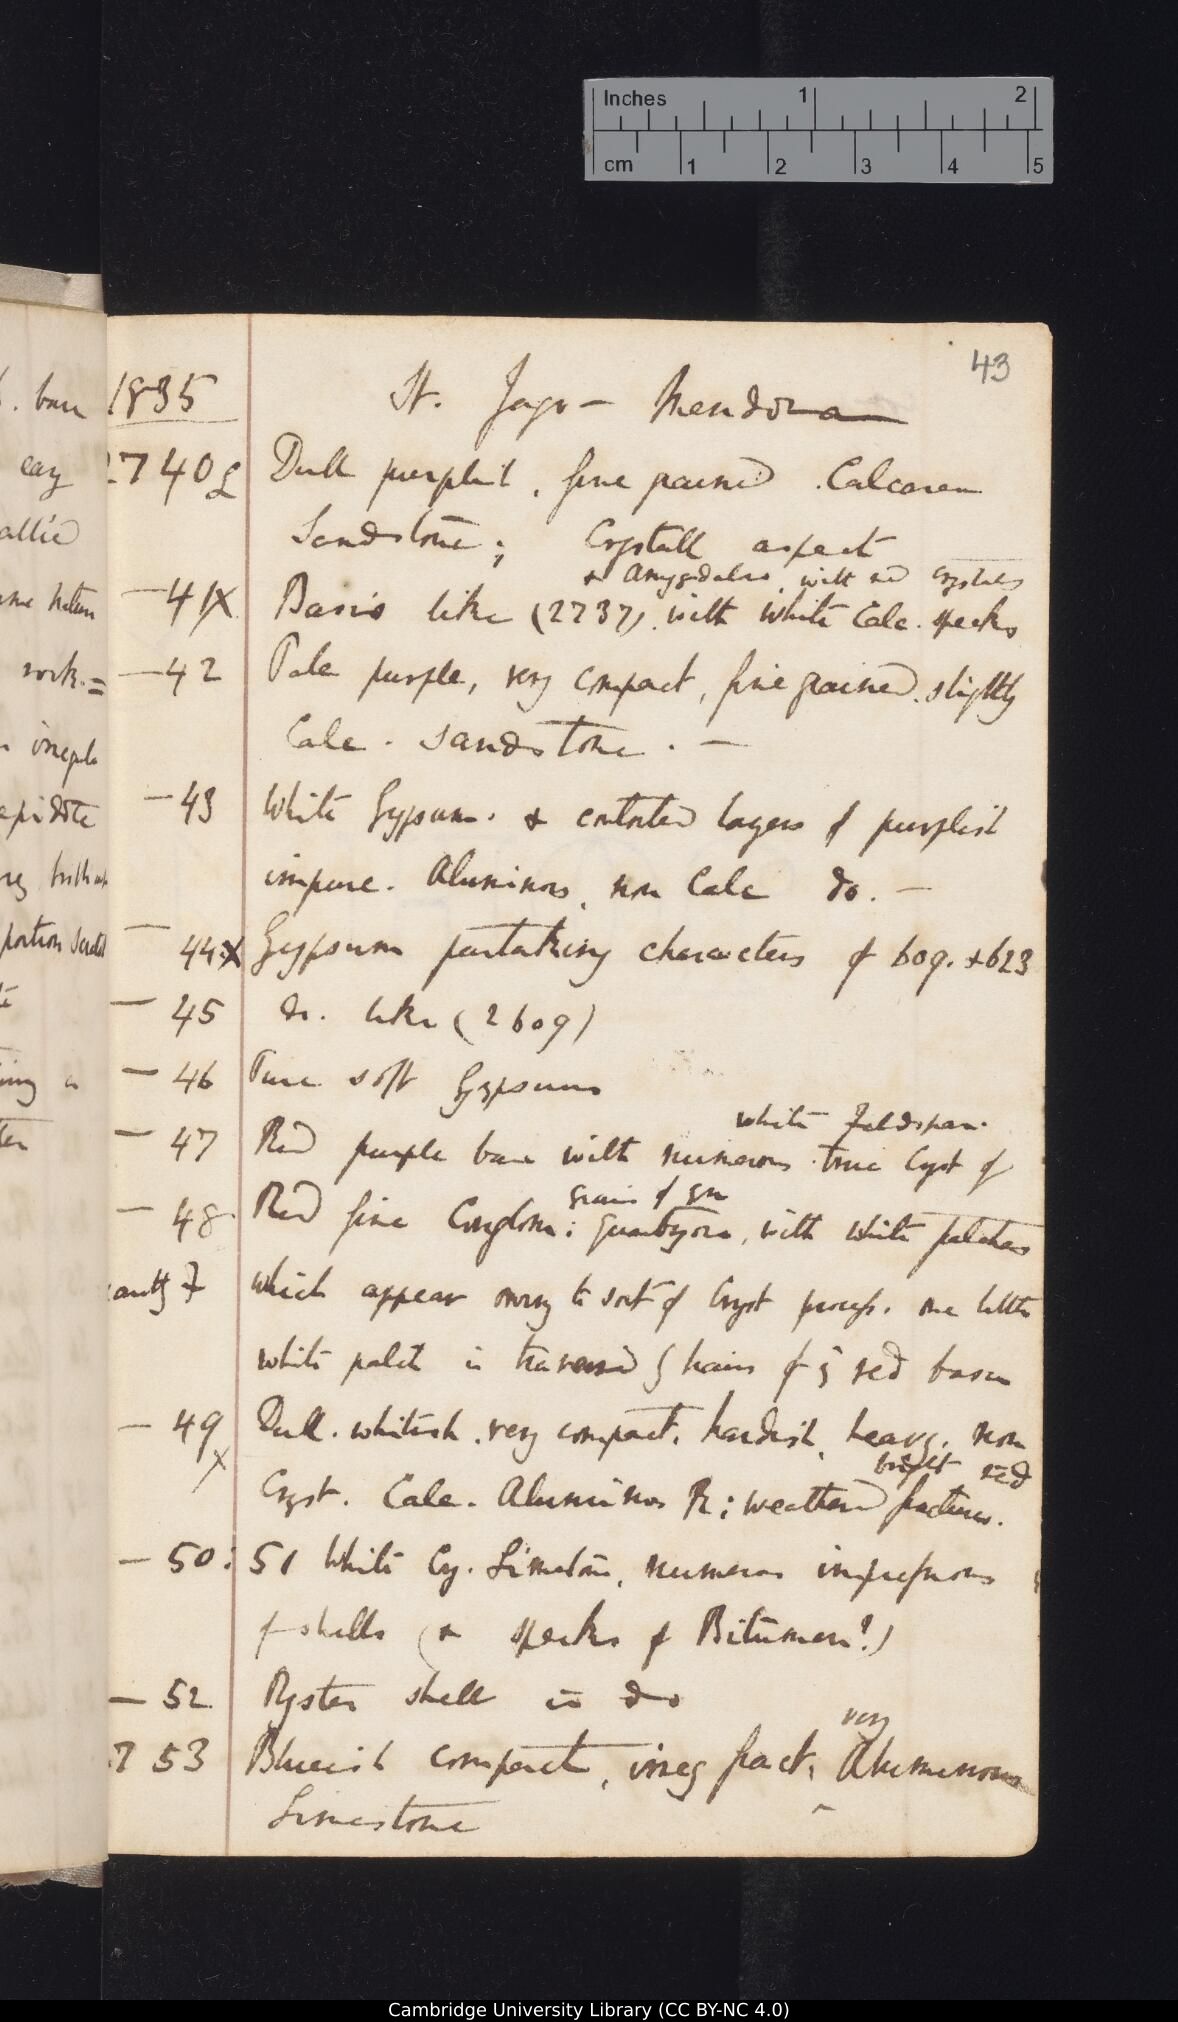 Inches 1 2
cm 1 2 3 4 5
43
1835 St. Jago - Mendoza
2740 Dull purplish, fine grained Calcareous
Sandstone; Crystall aspect
& Amygdaloid with red crystals
— 41X Basis like (2737) with white Calc. specks
— 42 Pale purple, very compact, fine grained slightly
Calc. Sandstone. —
— 43 White Gypsum. & contorted layers of purplish
impure. Aluminous, non Calc do. —
— 44X Gypsum partaking characters of 609. & 623
— 45 do. like (2609)
— 46 Pure soft Gypsum
white Feldspar.
— 47 Red purple base with numerous true Cryst of
grains of
— 48 Red fine Conglom: with white patches
which appear owing to sort of Cryst process. one little
white patch is traversed by of red basis
— 49 Dull. whitish. very compact. hardish, heavy. non
bright red
X Cryst. Calc. Aluminous R; weathered fractures.
— 50: 51 White Cry. Limestone, numerous impressions
of shells (& specks of Bitumen?)
— 52 Oyster shell in do
very
753 Blueish compact, irreg fract, Aluminous
Limestone
base
rock. =
epidote
Cambridge University Library (CC BY-NC 4.0)